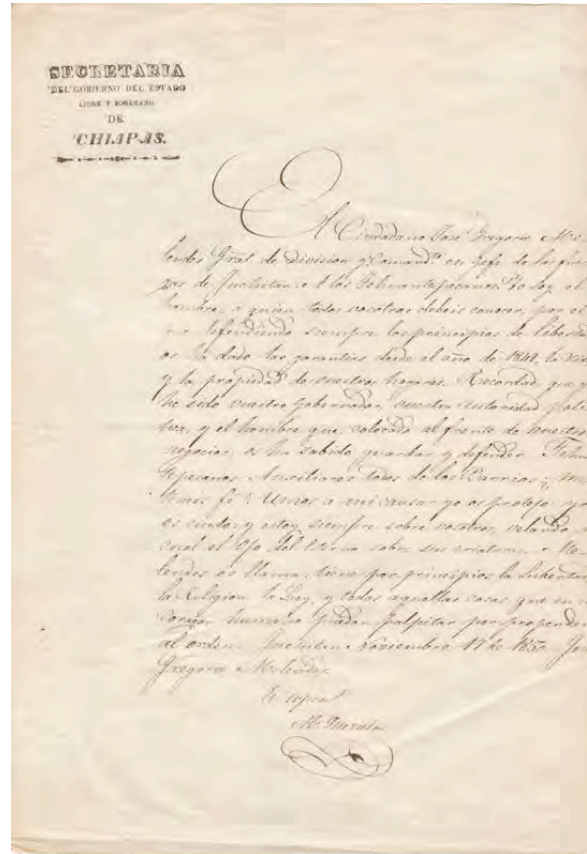 SECRETARIA
DEL GOBIERNO DEL ESTADO
LIBRE Y SOBERANO
DE
CHIAPAS.
El Ciudadano José Gregorio Me
lendes Gral de division y Comand.e en Gefe de las fuer
zas de Juchitan. A los Tehuantepecanos. Yo soy el
hombre a quien todos vosotros debeis conocer, por el
defendiendo siempre los principios de libertad
os ha dado las garantias desde el año de 1847, la vid
y la propiedad de vuestros hogares. Recordad que y
he sido vuestro Gobernador, vuestra autoridad poli
tica, y el hombre que, colocado al frente de vuestros
negocios, os ha sabido guardar y defender. Tehuan
tepecanos. Auxiliares todos de los Barrios;
fé. Unios a mi causa: yo os protejo, yo
os cuido, y estoy siempre sobre vosotros, velando
cual el Ojo del Eterno sobre sus criaturas. Me
lendes os llama, tiene por principios la Libertad
la Religion, la Ley, y todas aquellas cosas que en el
corazon humano puedan palpitar por propender
al orden. Juchitan Noviembre 17 de 1850. José
Gregorio Melendes.
Es copia